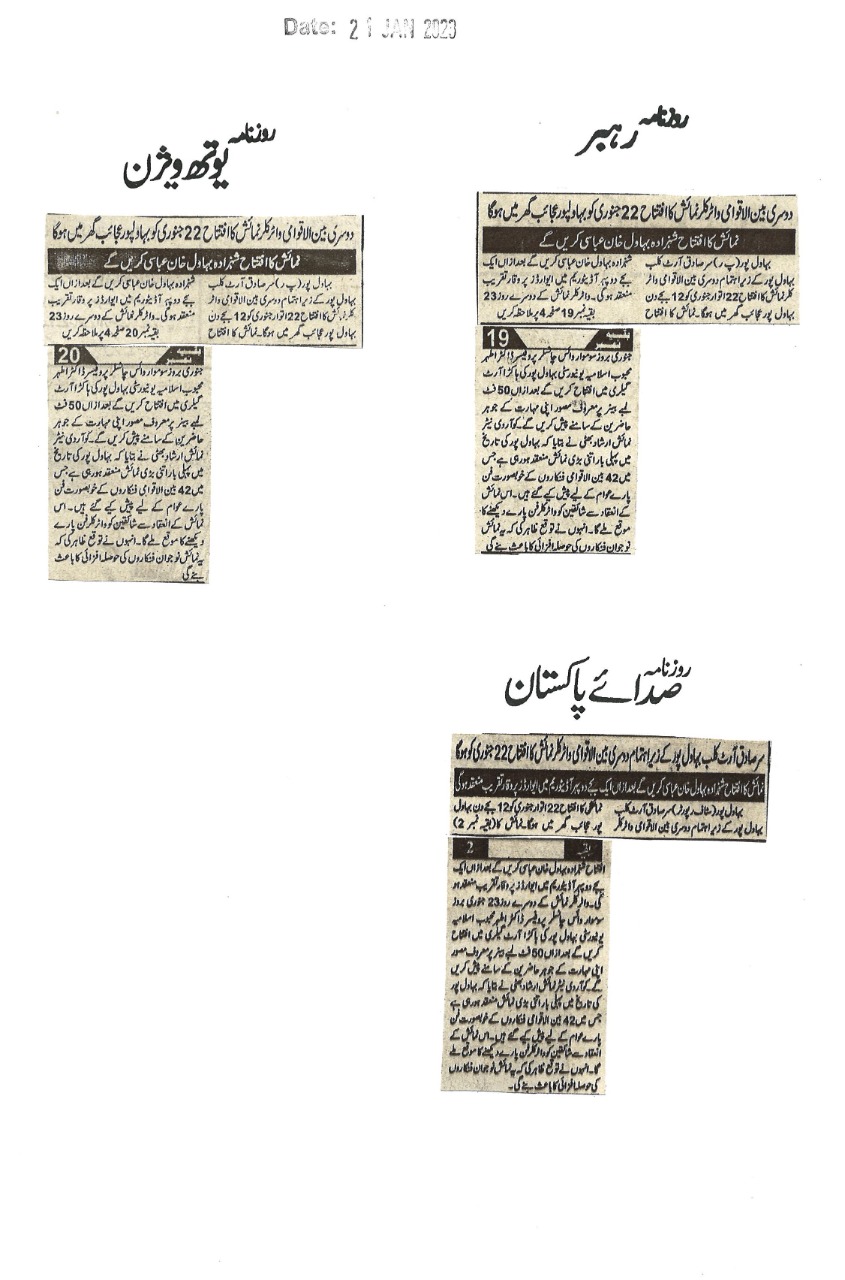 Date: 21 JAN 2023
روزنامہ
رہبر
دوسری بین الاقوامی واٹر کلر نمائش کا افتتاح 22 جنوری کو بہاولپور عجائب گھر میں ہوگا
نمائش کا افتتاح شہزادہ بہاول خان عباسی کریں گے
بہاول پور (پ ر) سر صادق آرٹ کلب
بہاول پور کے زیر اہتمام دوسری بین الاقوامی واٹر
کلر نمائش کا افتتاح 22 اتوار جنوری کو 12 بجے دن
بہاول پور عجائب گھر میں ہوگا۔ نمائش کا افتتاح
شہزادہ بہاول خان عباسی کریں گے بعد ازاں ایک
بجے دوپہر آڈیٹوریم میں ایوارڈز پروقار تقریب
منعقد ہوگی۔ واٹر کلر نمائش کے دوسرے روز 23
بقیہ نمبر 19 صفحہ 4 پر ملاحظہ کریں
بقیہ نمبر 19
جنوری بروز سوموار وائس چانسلر پروفیسر ڈاکٹر اطہر
محبوب اسلامیہ یونیورسٹی بہاول پور کی باکڑا آرٹ
گیلری میں افتتاح کریں گے بعد ازاں 50 فٹ
لمبے بینر پر معروف مصور اپنی مہارت کے جوہر
حاضرین کے سامنے پیش کریں گے کوآرڈی نیٹر
نمائش ارشاد بھٹی نے بتایا کہ بہاول پور کی تاریخ
میں پہلی بار اتنی بڑی نمائش منعقد ہورہی ہے جس
میں 42 بین الاقوامی فنکاروں کے خوبصورت فن
پارے عوام کے لیے پیش کیے گئے ہیں۔ اس نمائش
کے انعقاد سے شائقین کو واٹر کلر فن پارے دیکھنے کا
موقع ملے گا۔ انہوں نے توقع ظاہر کی کہ یہ نمائش
نوجوان فنکاروں کی حوصلہ افزائی کا باعث بنے گی
روزنامہ
یوتھ ویژن
دوسری بین الاقوامی واٹر کلر نمائش کا افتتاح 22 جنوری کو بہاولپور عجائب گھر میں ہوگا
نمائش کا افتتاح شہزادہ بہاول خان عباسی کریں گے
بہاول پور (پ ر) سر صادق آرٹ کلب
بہاول پور کے زیر اہتمام دوسری بین الاقوامی واٹر
کلر نمائش کا افتتاح 22 اتوار جنوری کو 12 بجے دن
بہاول پور عجائب گھر میں ہوگا۔ نمائش کا افتتاح
شہزادہ بہاول خان عباسی کریں گے بعد ازاں ایک
بجے دوپہر آڈیٹوریم میں ایوارڈز پروقار تقریب
منعقد ہوگی۔ واٹر کلر نمائش کے دوسرے روز 23
بقیہ نمبر 20 صفحہ 4 پر ملاحظہ کریں
بقیہ نمبر 20
جنوری بروز سوموار وائس چانسلر پروفیسر ڈاکٹر اطہر
محبوب اسلامیہ یونیورسٹی بہاول پور کی باکڑا آرٹ
گیلری میں افتتاح کریں گے بعد ازاں 50 فٹ
لمبے بینر پر معروف مصور اپنی مہارت کے جوہر
حاضرین کے سامنے پیش کریں گے۔ کوآرڈی نیٹر
نمائش ارشاد بھٹی نے بتایا کہ بہاول پور کی تاریخ
میں پہلی بار اتنی بڑی نمائش منعقد ہورہی ہے جس
میں 42 بین الاقوامی فنکاروں کے خوبصورت فن
پارے عوام کے لیے پیش کیے گئے ہیں۔ اس
نمائش کے انعقاد سے شائقین کو واٹر کلر فن پارے
دیکھنے کا موقع ملے گا۔ انہوں نے توقع ظاہر کی کہ
یہ نمائش نوجوان فنکاروں کی حوصلہ افزائی کا باعث
بنے گی
روزنامہ
صدائے پاکستان
سر صادق آرٹ کلب بہاول پور کے زیر اہتمام دوسری بین الاقوامی واٹر کلر نمائش کا افتتاح 22 جنوری کو ہوگا
نمائش کا افتتاح شہزادہ بہاول خان عباسی کریں گے بعد ازاں ایک بجے دوپہر آڈیٹوریم میں ایوارڈز پروقار تقریب منعقد ہوگی
بہاول پور (سٹاف رپورٹر) سر صادق آرٹ کلب
بہاول پور کے زیر اہتمام دوسری بین الاقوامی واٹر کلر
نمائش کا افتتاح 22 اتوار جنوری کو 12 بجے دن بہاول
پور عجائب گھر میں ہوگا۔ نمائش کا (بقیہ نمبر 2)
بقیہ 2
افتتاح شہزادہ بہاول خان عباسی کریں گے بعد ازاں ایک
بجے دوپہر آڈیٹوریم میں ایوارڈز پروقار تقریب منعقد ہو
گی۔ واٹر کلر نمائش کے دوسرے روز 23 جنوری بروز
سوموار وائس چانسلر پروفیسر ڈاکٹر اطہر محبوب اسلامیہ
یونیورسٹی بہاول پور کی باکڑا آرٹ گیلری میں افتتاح
کریں گے بعد ازاں 50 فٹ لمبے بینر پر معروف مصور
اپنی مہارت کے جوہر حاضرین کے سامنے پیش کریں
گے۔ کوآرڈی نیٹر نمائش ارشاد بھٹی نے بتایا کہ بہاول پور
کی تاریخ میں پہلی بار اتنی بڑی نمائش منعقد ہورہی ہے
جس میں 42 بین الاقوامی فنکاروں کے خوبصورت فن
پارے عوام کے لیے پیش کیے گئے ہیں۔ اس نمائش کے
انعقاد سے شائقین کو واٹر کلر فن پارے دیکھنے کا موقع ملے
گا۔ انہوں نے توقع ظاہر کی کہ یہ نمائش نوجوان فنکاروں
کی حوصلہ افزائی کا باعث بنے گی۔